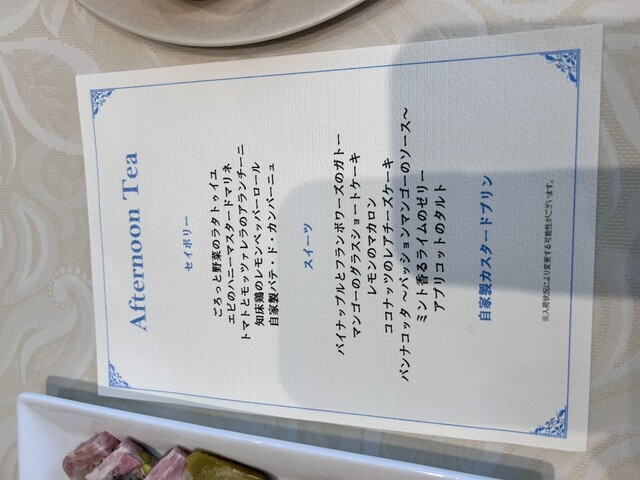 Afternoon Tea
セイボリー
ごろっと野菜のラタトゥイユ
エビのハニーマスタードマリネ
トマトとモッツァレラのアランチーニ
知床鶏のレモンペッパーロール
自家製パテ・ド・カンパーニュ
スイーツ
パイナップルとフランボワーズのガトー
マンゴーのグラスショートケーキ
レモンのマカロン
ココナッツのレアチーズケーキ
パンナコッタ ～パッションマンゴーのソース～
ミント香るライムのゼリー
アプリコットのタルト
自家製カスタードプリン
※入荷状況により変更する可能性がございます。